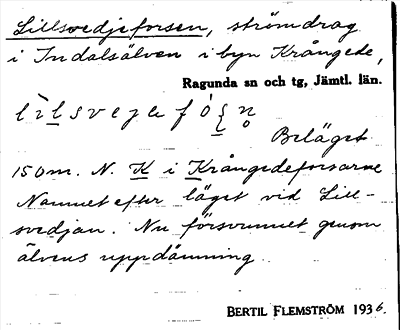 Lillsvedjeforsen, strömdrag
i Indalsälven i byn Krångede,
Ragunda sn och tg, Jämtl. län.
Beläget
150m. N. K i Krångedeforsarne
Namnet efter läget vid Lill-
svedjan. Nu försvunnet genom
älvens uppdämning.
BERTIL FLEMSTRÖM 1936.